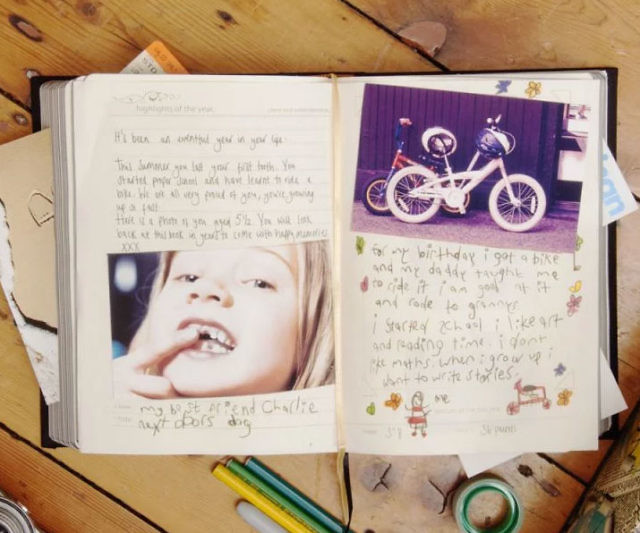 highlights of the year
It's been an eventful year in your life
This Summer you lost your first tooth. You
Started proper School and have learnt to ride a
bike. We are all very proud of you, you're growing
up so fast.
Here is a photo of you aged 5½. You will look
back at this book in years to come with happy memories
xxx
my best friend Charlie
next doors dog
for my birthday i got a bike
and my daddy taught me
to ride it i am good at it
and rode to grannys
i started school i like art
and reading time. i dont
like maths. when i grow up i
want to write stories.
me